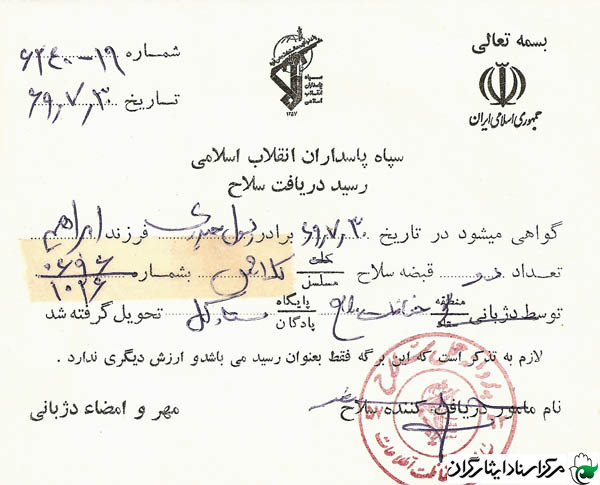 بسمه تعالی
جمهوری اسلامی ایران
سپاه
پاسداران
انقلاب
اسلامی
۱۳۵۷
شماره ۱۹-۶۴۴۰
تاریخ ۶۹٫۷٫۳۰
سپاه پاسداران انقلاب اسلامی
رسید دریافت سلاح
گواهی میشود در تاریخ ۶۹٫۷٫۳۰ برادر رسول حیدری فرزند ابراهیم
تعداد دو قبضه سلاح کلت مسلسل کلاش بشماره ۰۶۹۶ ۱۰۲۶
توسط دژبانی منطقه ستاد حفاظت پایگاه پادگان ستاد کل تحویل گرفته شد
لازم به تذکر است که این برگه فقط بعنوان رسید می باشد و ارزش دیگری ندارد .
نام مامور دریافت کننده سلاح
مهر و امضاء دژبانی
حفاظت اطلاعات
مرکز اسناد ایثارگران